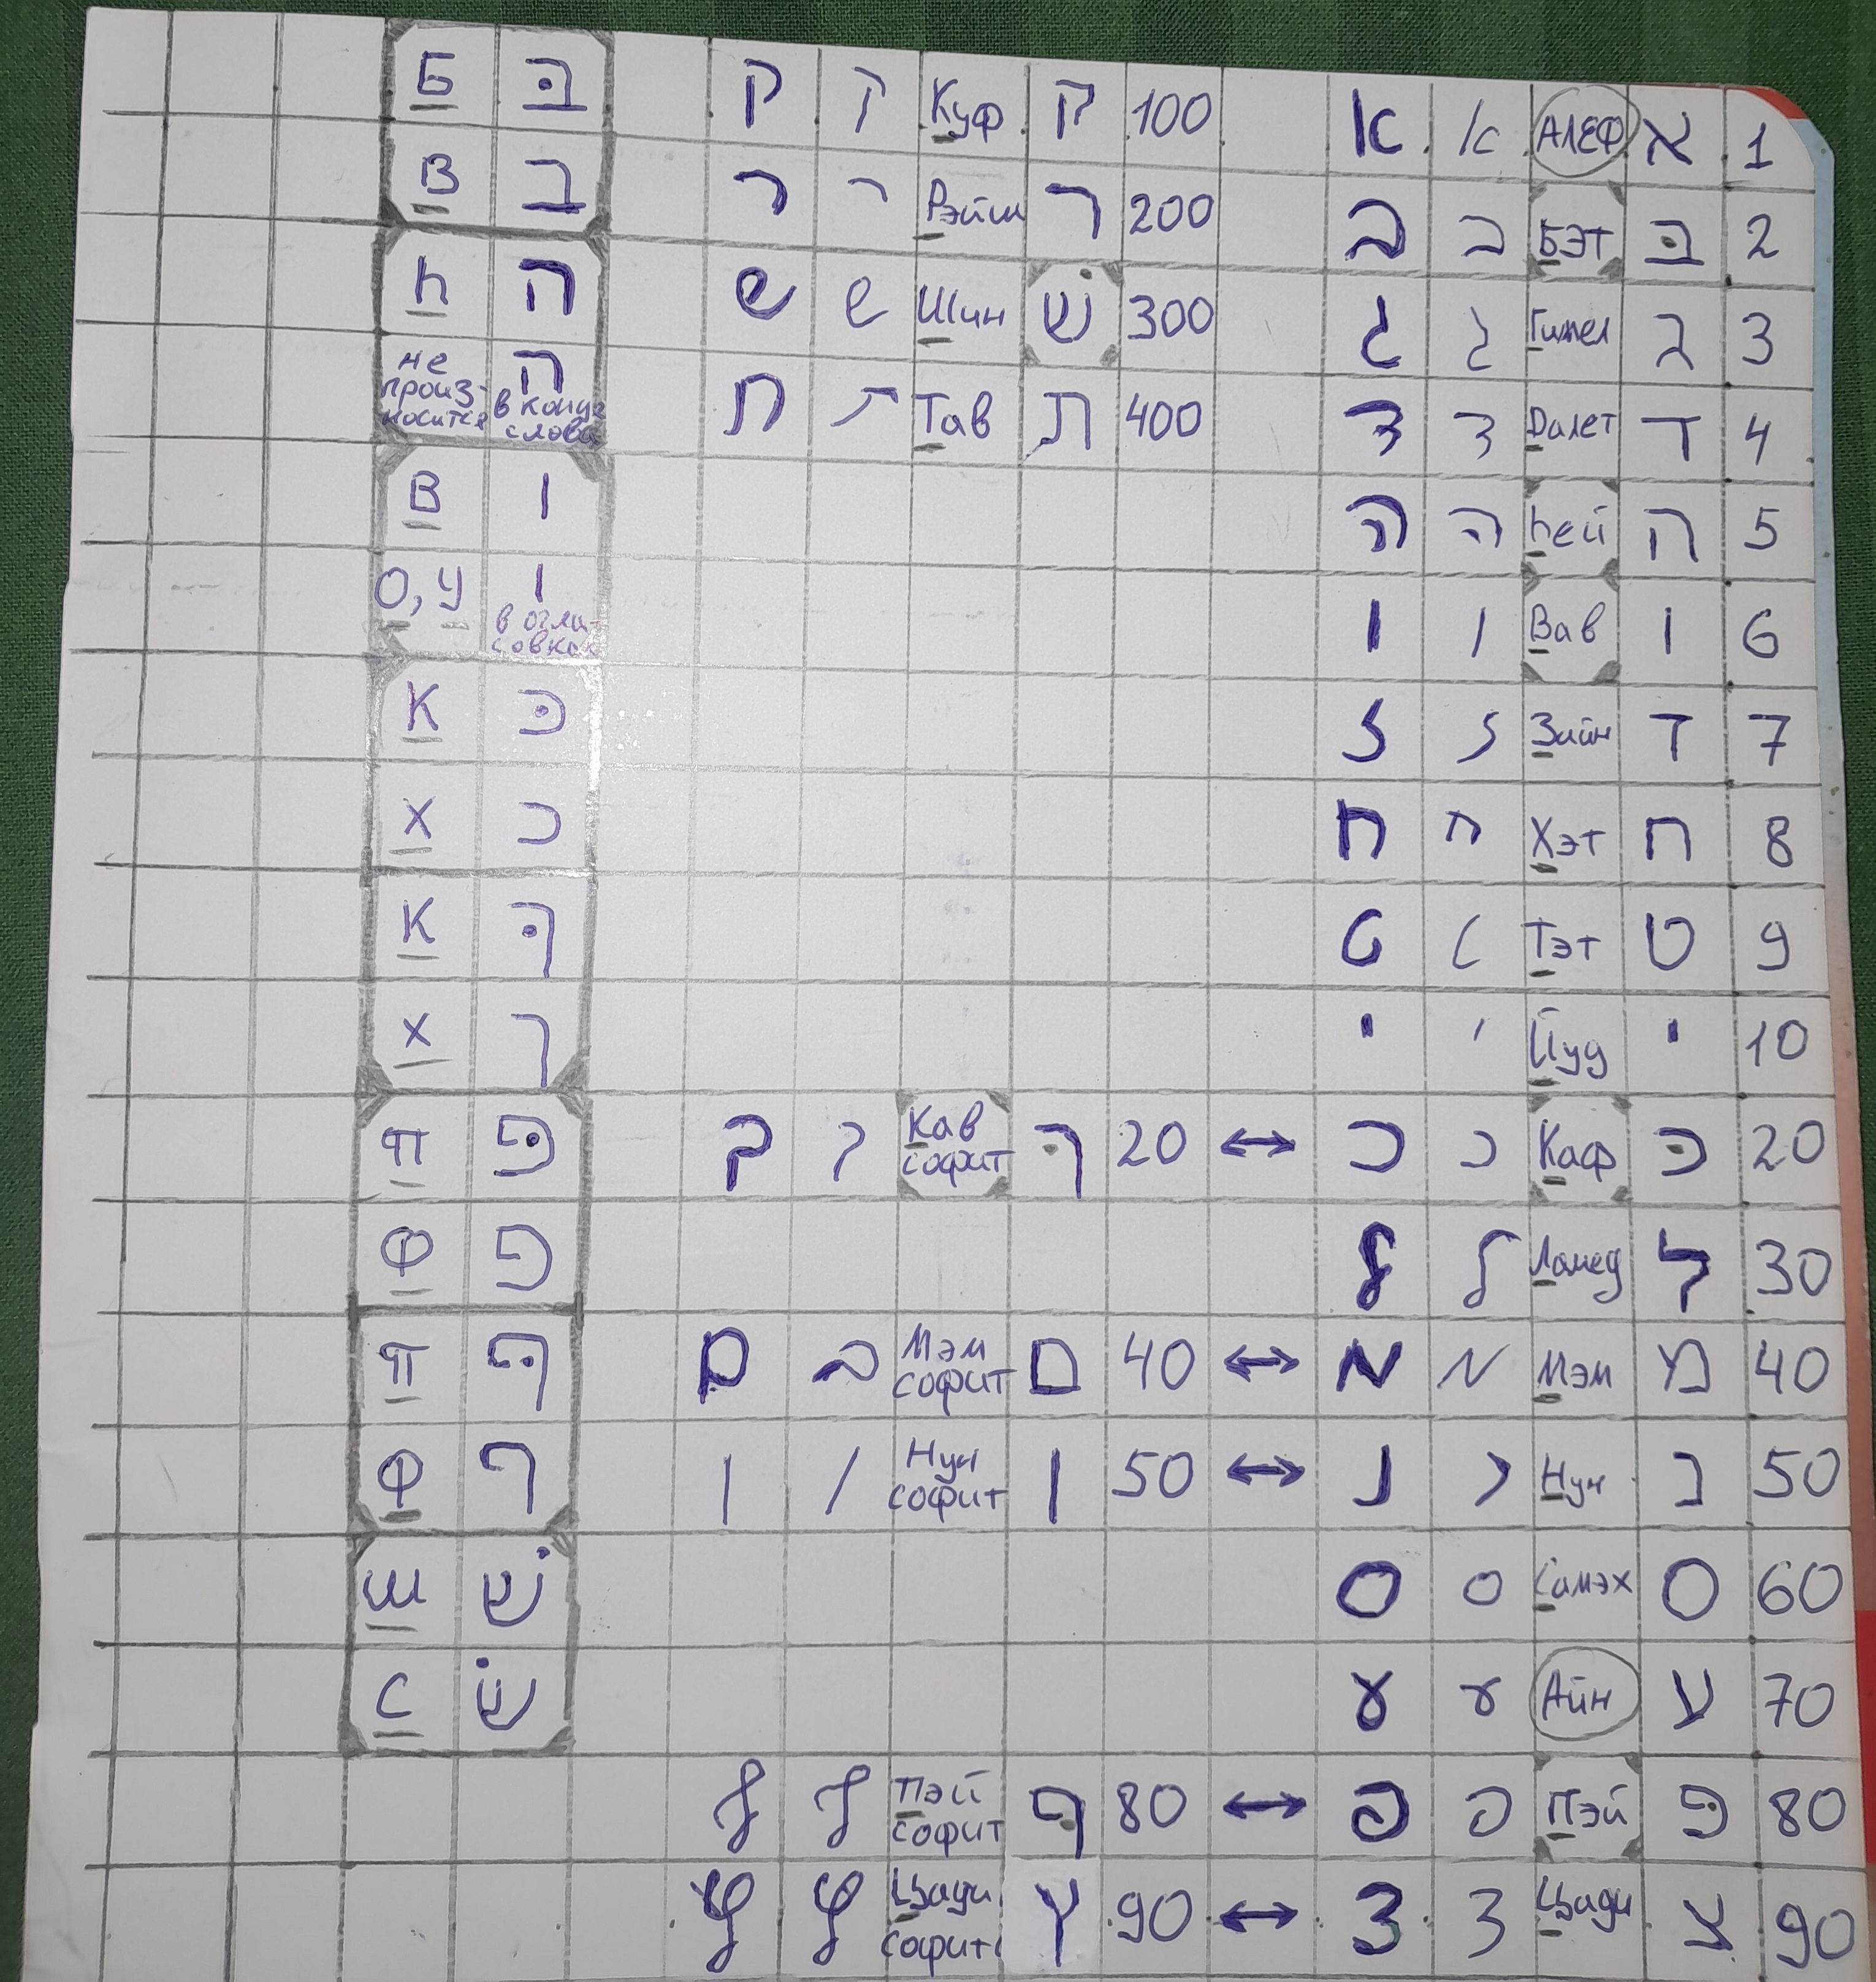 Б בּ ק ק Куф ק 100 א א АЛЕФ א 1
В ב ר ר Рэйш ר 200 ב ב БЭТ בּ 2
һ ה ש ש Шин שׁ 300 ג ג Гимел ג 3
не произ-носится ה в конце слова ת ת Тав ת 400 ד ד Далет ד 4
В ו ה ה һей ה 5
О, У ו в огла-совках ו ו Вав ו 6
К כּ ז ז Зайн ז 7
Х כ ח ח Хэт ח 8
К ךּ ט ט Тэт ט 9
Х ך י י Йуд י 10
П פּ ך ך Кав софит ךּ 20 ↔ כ כ Каф כּ 20
Ф פ ל ל Ламед ל 30
П ףּ ם ם Мэм софит ם 40 ↔ מ מ Мэм מ 40
Ф ף ן ן Нун софит ן 50 ↔ נ נ Нун נ 50
Ш שׁ ס ס Самэх ס 60
С שׂ ע ע Айн ע 70
ף ף Пэй софит ףּ 80 ↔ פ פ Пэй פּ 80
ץ ץ Цади софит ץ 90 ↔ צ צ Цади צ 90